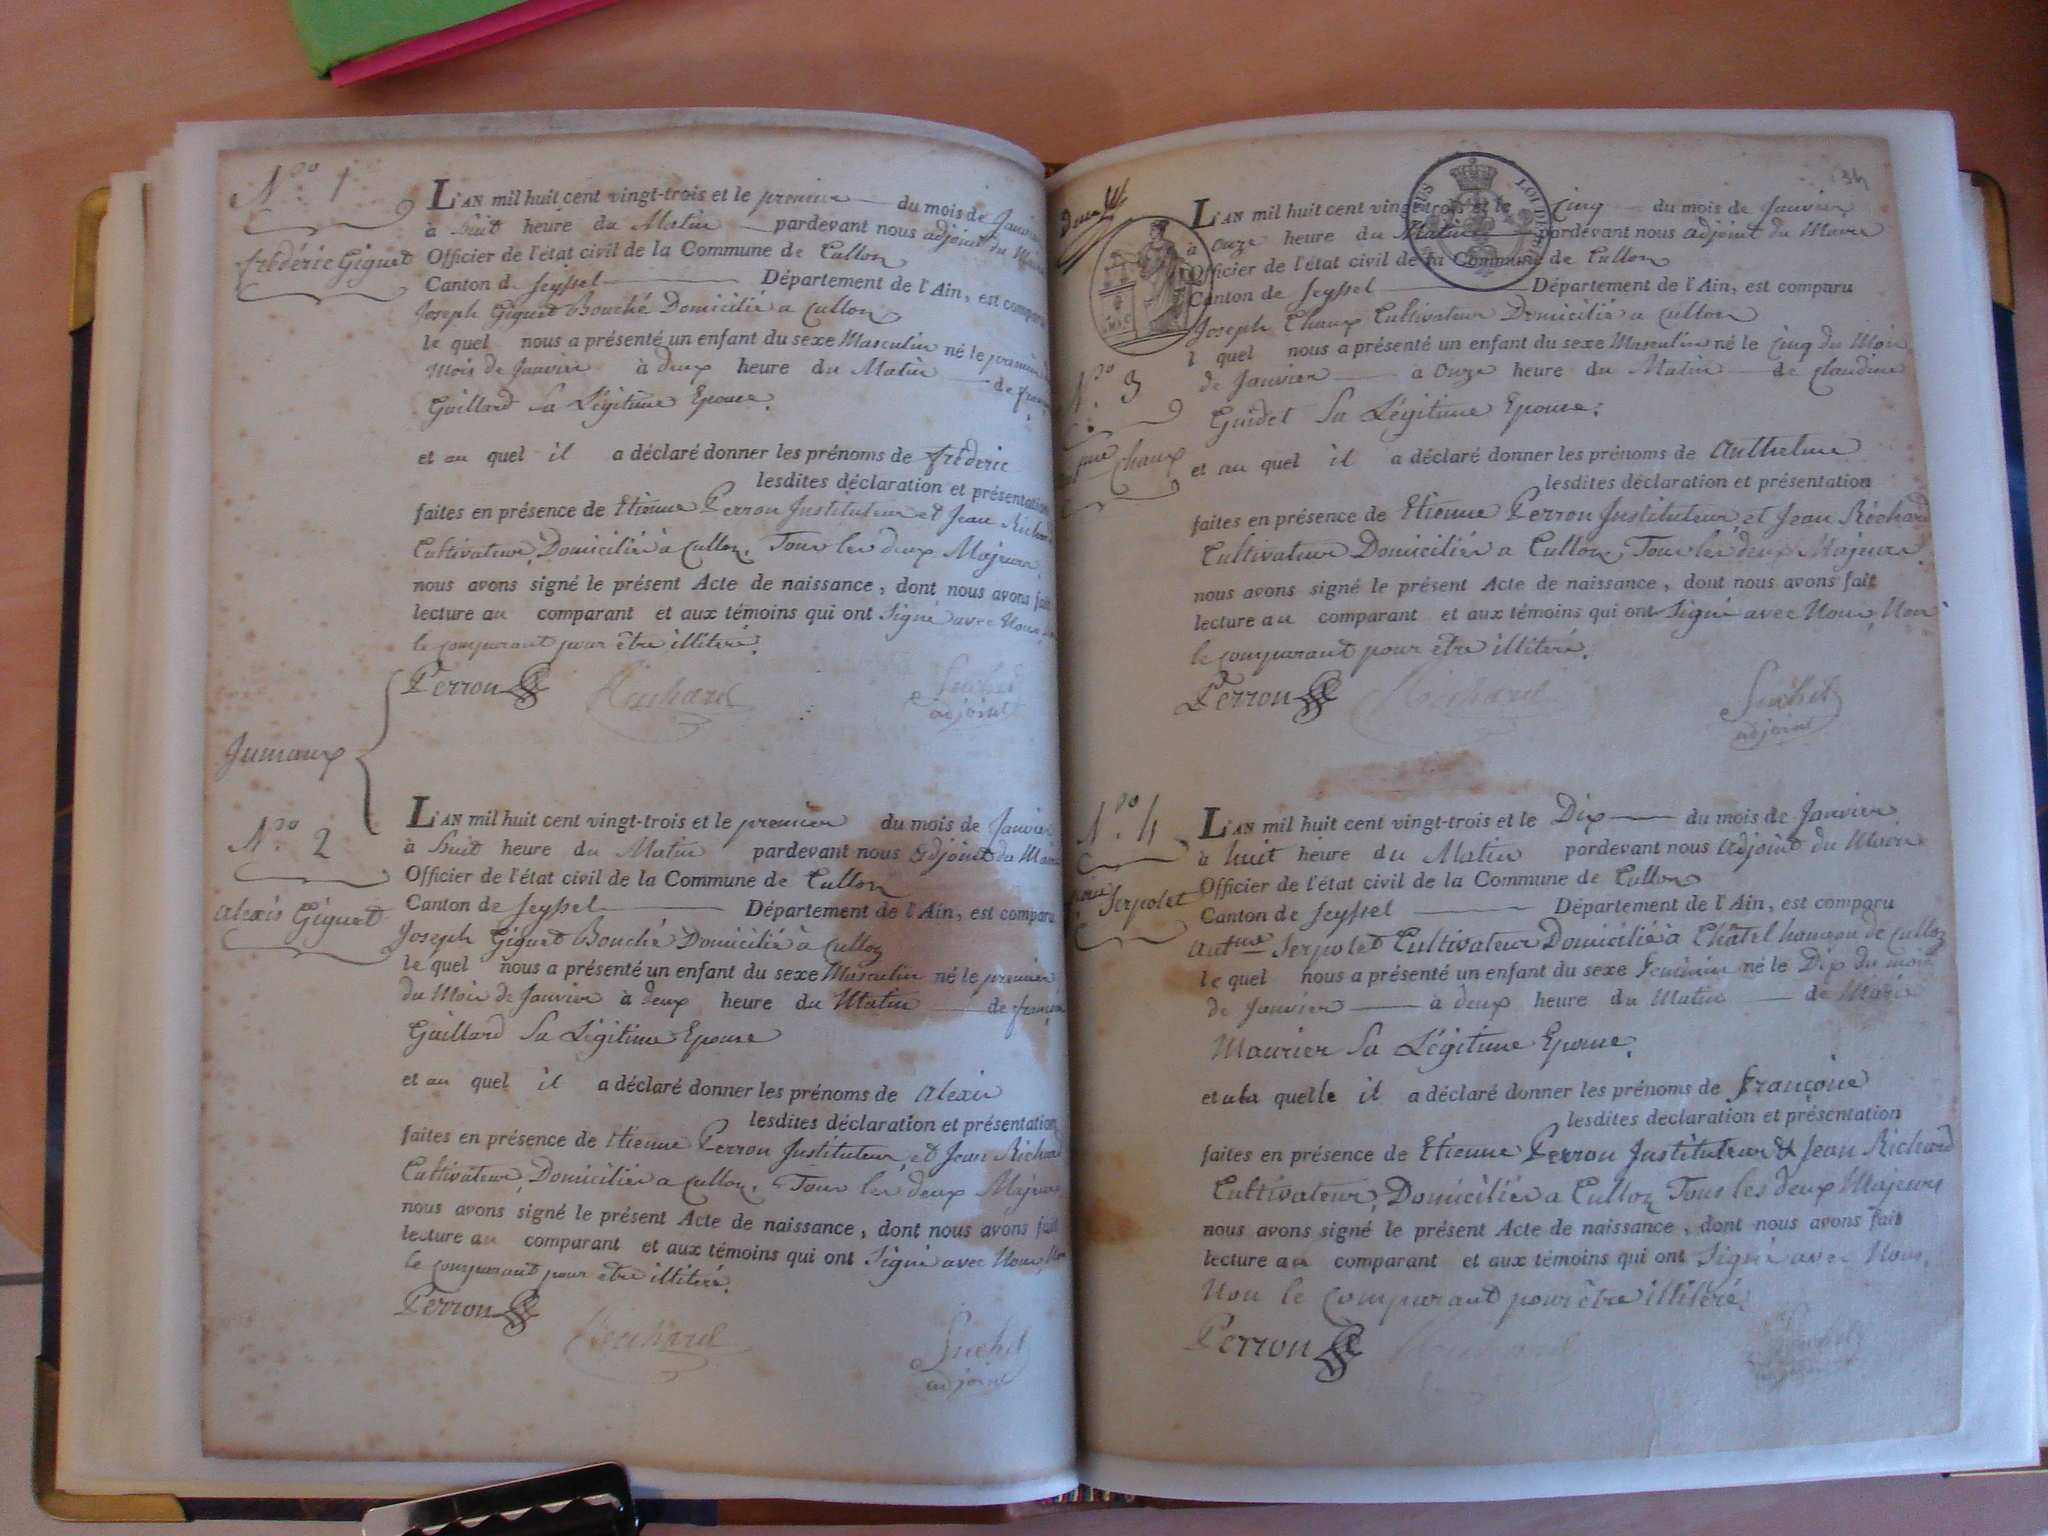 N.ro 1
Frédéric Giguet
L'AN mil huit cent vingt-trois et le premier du mois de Janvier
à huit heure du Matin pardevant nous adjoint du Maire
Officier de l'état civil de la Commune de Culloz
Canton d Seyssel Département de l'Ain, est comparu
Joseph Giguet Bouché Domicilié a Culloz
le quel nous a présenté un enfant du sexe Masculin né le premier du
Mois de Janvier à deux heure du Matin de
Gaillard Sa Légitime Epouse.
et au quel il a déclaré donner les prénoms de frédéric
lesdites déclaration et présentation
faites en présence de Etienne Perron Instituteur et Jean Richard
Cultivateur, Domiciliés à Culloz, Tous les deux Majeurs.
nous avons signé le présent Acte de naissance, dont nous avons fait
lecture au comparant et aux témoins qui ont Signé avec Nous,
le comparant pour être illitéré.
Perron Richard Suchet
adjoint
Jumaux
N.ro 2
Alexis Giguet
L'AN mil huit cent vingt-trois et le premier du mois de Janvier
à huit heure du Matin pardevant nous adjoint du Maire
Officier de l'état civil de la Commune de Culloz
Canton de Seyssel Département de l'Ain, est comparu
Joseph Giguet Bouché Domicilié à Culloz
le quel nous a présenté un enfant du sexe Masculin né le premier
du Mois de Janvier à deux heure du Matin de françoise
Gaillard Sa Légitime Epouse
et au quel il a déclaré donner les prénoms de Alexis
lesdites déclaration et présentation
faites en présence de Etienne Perron Instituteur, et Jean Richard
Cultivateur, Domiciliés a Culloz. Tous les deux Majeurs
nous avons signé le présent Acte de naissance, dont nous avons fait
lecture au comparant et aux témoins qui ont Signé avec Nous, Non
le comparant pour être illitéré.
Perron Richard Suchet
adjoint
34
N.ro 3
Chaux
L'AN mil huit cent vingt-trois et le Cinq du mois de Janvier
à Onze heure du Matin pardevant nous adjoint du Maire
Officier de l'état civil de la Commune de Culloz
Canton de Seyssel Département de l'Ain, est comparu
Joseph Chaux Cultivateur Domicilié a Culloz
l quel nous a présenté un enfant du sexe Masculin né le Cinq du Mois
de Janvier à Onze heure du Matin de Claudine
Guidet Sa Légitime Epouse.
et au quel il a déclaré donner les prénoms de Anthelme
lesdites déclaration et présentation
faites en présence de Etienne Perron Instituteur, et Jean Richard
Cultivateur Domiciliés a Culloz, Tous les deux Majeurs.
nous avons signé le présent Acte de naissance, dont nous avons fait
lecture au comparant et aux témoins qui ont Signé avec Nous, Non
le comparant pour être illitéré.
Perron Richard Suchet
adjoint
N.ro 4
Serpolet
L'AN mil huit cent vingt-trois et le Dix du mois de Janvier
à huit heure du Matin pardevant nous adjoint du Maire
Officier de l'état civil de la Commune de Culloz
Canton de Seyssel Département de l'Ain, est comparu
Ant.me Serpolet Cultivateur Domicilié à Châtel hameau de Culloz
le quel nous a présenté un enfant du sexe Feminin né le Dix du mois
de Janvier à deux heure du Matin de Marie
Maurier Sa Légitime Epouse.
et a la quelle il a déclaré donner les prénoms de Françoise
lesdites déclaration et présentation
faites en présence de Etienne Perron Instituteur & Jean Richard
Cultivateur, Domiciliés a Culloz Tous les deux Majeurs
nous avons signé le présent Acte de naissance, dont nous avons fait
lecture au comparant et aux témoins qui ont Signé avec Nous,
Non le comparant pour être illitéré.
Perron Richard Suchet